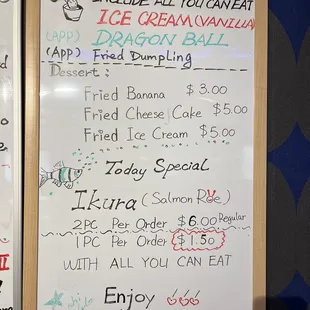 INCLUDE ALL YOU CAN EAT
ICE CREAM (VANILLA)
(APP) DRAGON BALL
(APP) Fried Dumpling
Dessert :
Fried Banana $ 3.00
Fried Cheese Cake $5.00
Fried Ice Cream $5.00
Today Special
Ikura (Salmon Roe)
2PC Per Order $6.00 Regular
1PC Per Order $1.50
WITH ALL YOU CAN EAT
Enjoy